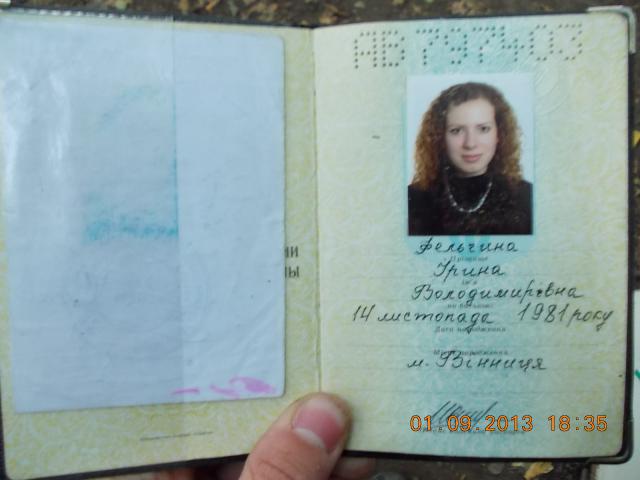 АВ 797403
ИИ
НЫ
Фельчина
Прізвище
Ірина
Ім'я
Володимирівна
по батькові
14 листопада 1981 року
Дата народження
Місце народження
м. Вінниця
01.09.2013 18:35